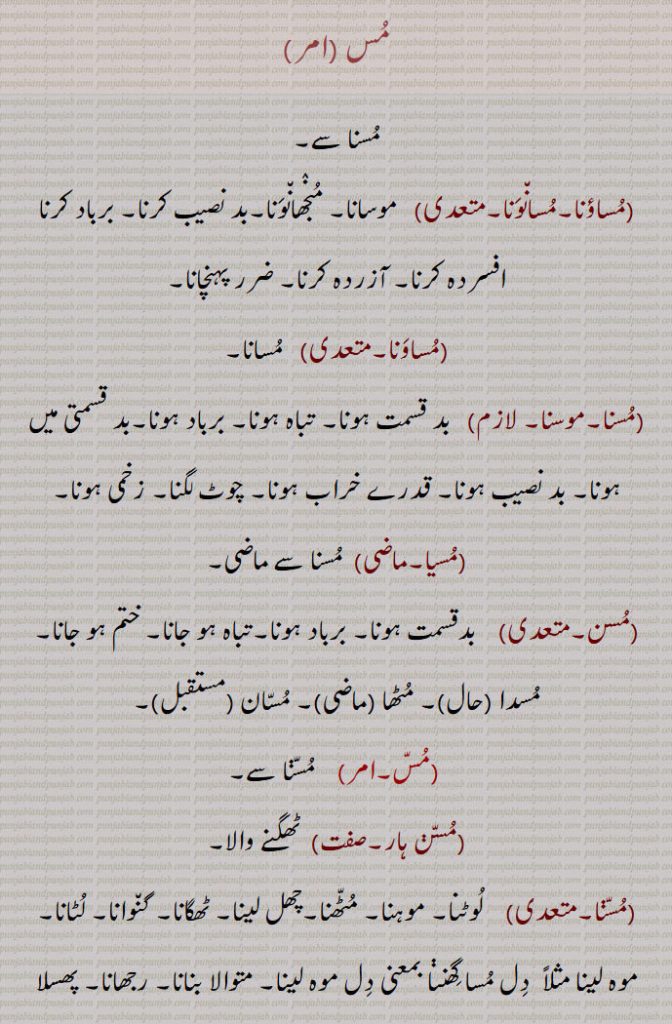 مُس (امر)
مُسنا سے۔
(مُساؤنا۔مُسانّوَنا۔متعدی) موسانا۔ مُنجھانّوَنا۔بد نصیب کرنا۔ برباد کرنا
افسردہ کرنا۔ آزردہ کرنا۔ ضرر پہنچانا۔
(مُساوَنا۔متعدی) مُسانا۔
(مُسنا۔موسنا۔ لازم) بد قسمت ہونا۔ تباہ ہونا۔ برباد ہونا۔بد قسمتی میں
ہونا۔ بد نصیب ہونا۔ قدرے خراب ہونا۔ چوٹ لگنا۔ زخمی ہونا۔
(مُسیا۔ماضی) مُسنا سے ماضی۔
(مُسن۔متعدی) بدقسمت ہونا۔ برباد ہونا۔تباہ ہو جانا۔ ختم ہو جانا۔
مُسدا (حال)۔ مُٹھا (ماضی)۔ مُسّان (مستقبل)۔
(مُسّ۔امر) مُسّݨا سے۔
(مُسّݨ ہار۔صفت) ٹھگنے والا۔
(مُسّݨا۔متعدی) لُوٹنا۔ موہنا۔ مُٹھّنا۔چھل لینا۔ ٹھگانا۔ گنّوانا۔ لُٹانا۔
موہ لینا مثلاً دِل مُسا گھِننݨا بمعنی دِل موہ لینا۔ متوالا بنانا۔ رجھانا۔ پھسلا